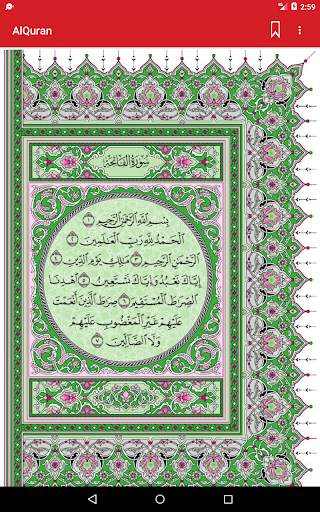 2:59
AlQuran
سُورَةُ الفَاتِحَةِ
بِسْمِ اللَّهِ الرَّحْمَٰنِ الرَّحِيمِ ١
الْحَمْدُ لِلَّهِ رَبِّ الْعَالَمِينَ ٢
الرَّحْمَٰنِ الرَّحِيمِ ٣ مَالِكِ يَوْمِ الدِّينِ ٤
إِيَّاكَ نَعْبُدُ وَإِيَّاكَ نَسْتَعِينُ ٥ اهْدِنَا
الصِّرَاطَ الْمُسْتَقِيمَ ٦ صِرَاطَ الَّذِينَ أَنْعَمْتَ
عَلَيْهِمْ غَيْرِ الْمَغْضُوبِ عَلَيْهِمْ
وَلَا الضَّالِّينَ ٧